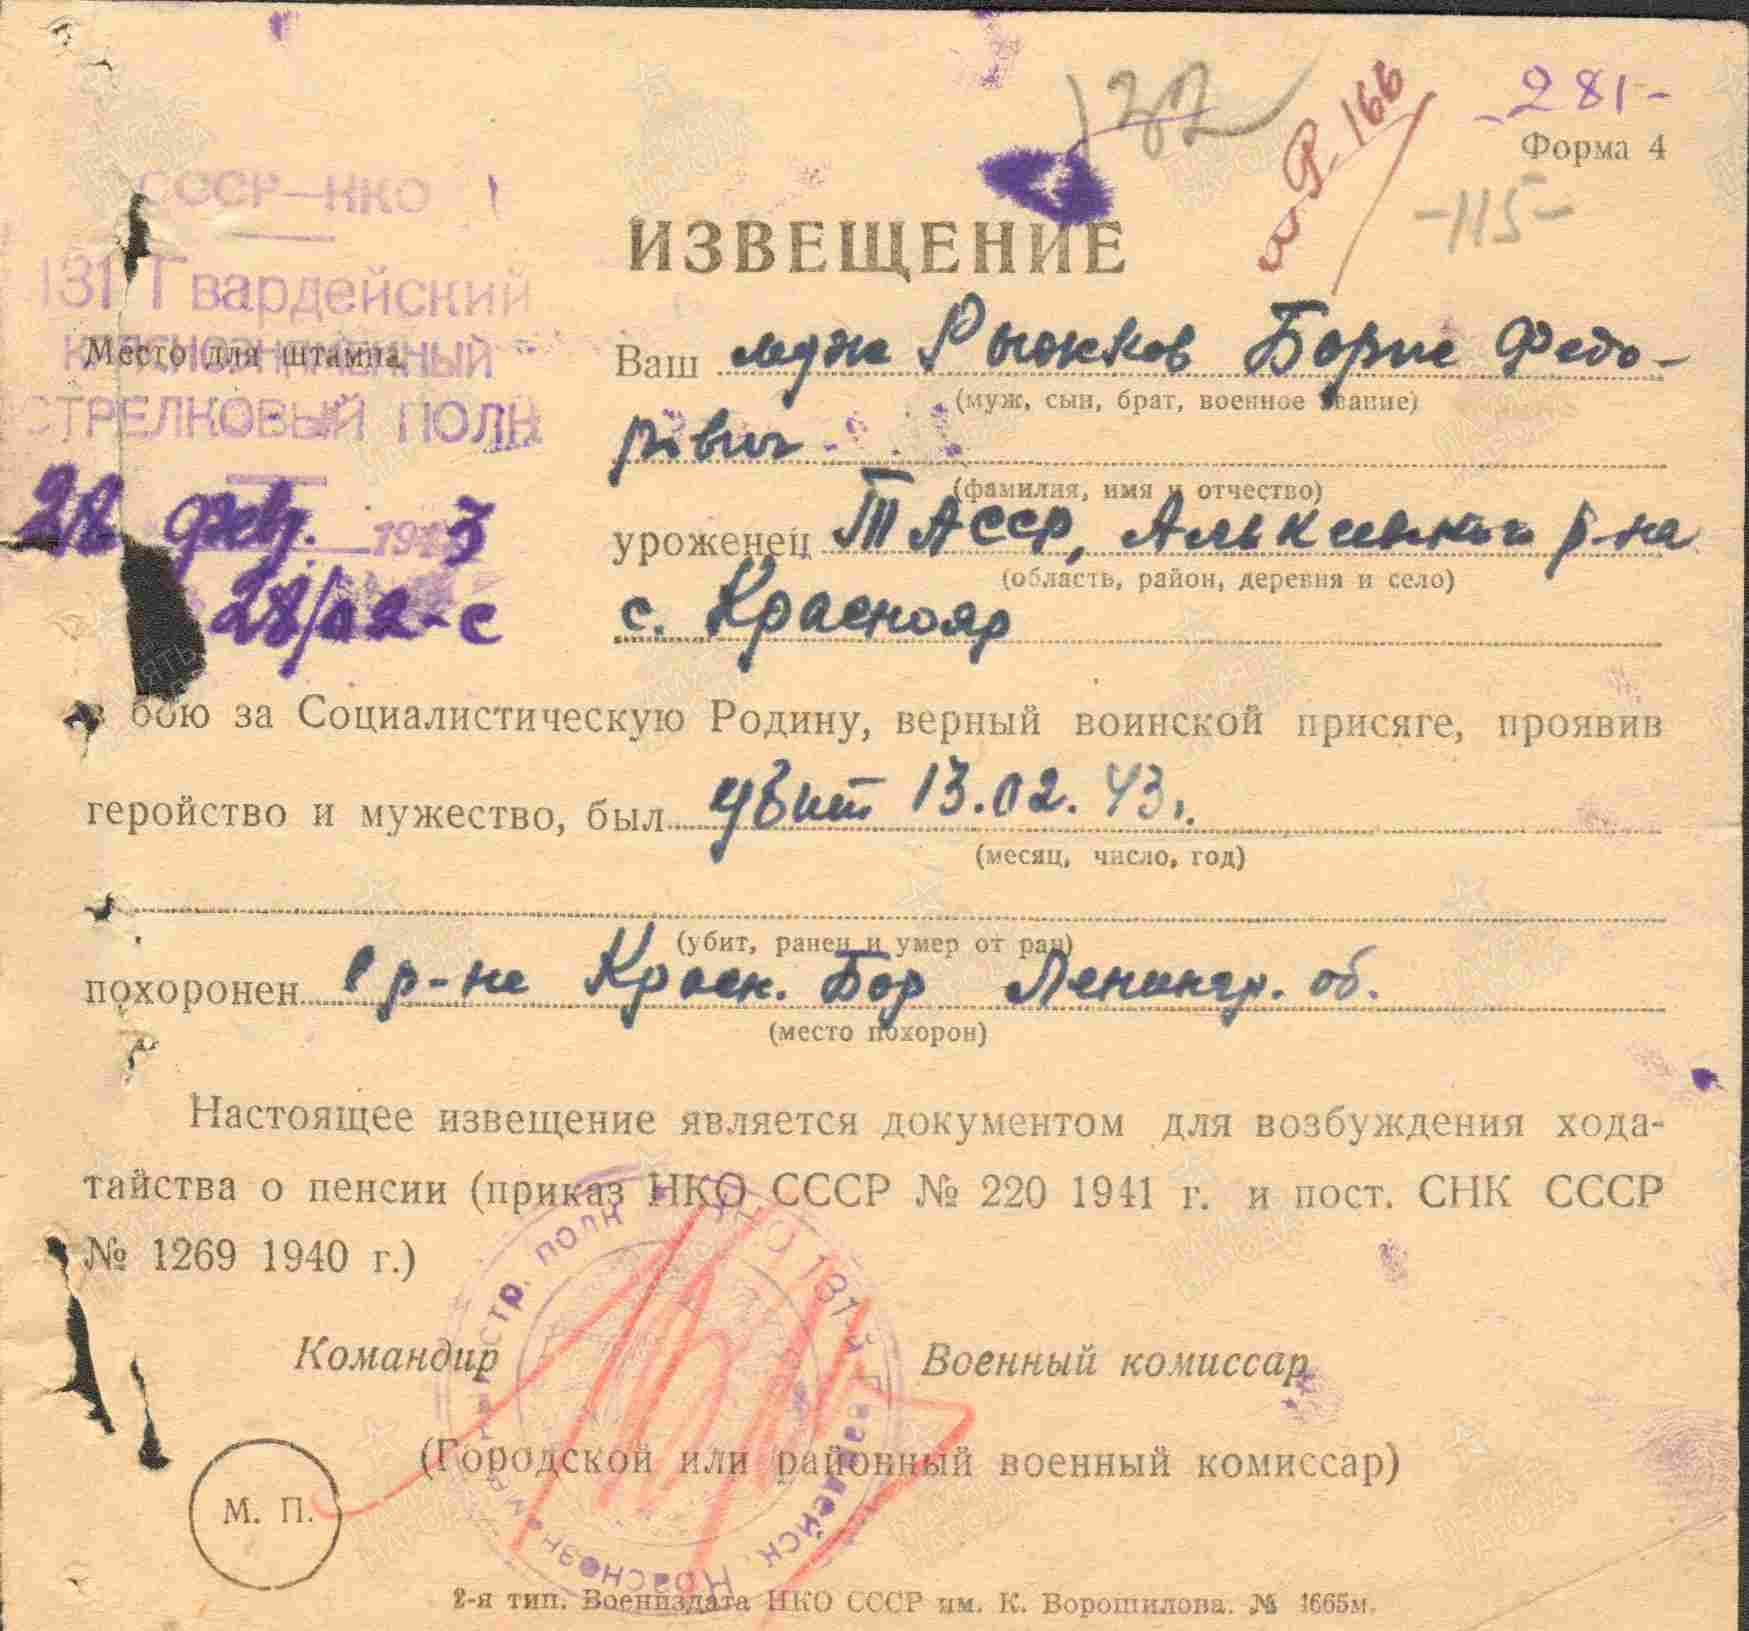 122
Р-166
281-
Форма 4
-115-
СССР—НКО
131 Гвардейский
КРАСНОЗНАМЕННЫЙ
СТРЕЛКОВЫЙ ПОЛК
Место для штампа.
28 февр. 1943
28/02-с
ИЗВЕЩЕНИЕ
Ваш муж Рыжков Борис Федо-
(муж, сын, брат, военное звание)
рович
(фамилия, имя и отчество)
уроженец ТАССР, Алькеевского р-на
(область, район, деревня и село)
с. Краснояр
в бою за Социалистическую Родину, верный воинской присяге, проявив
геройство и мужество, был убит 13.02.43г.
(месяц, число, год)
(убит, ранен и умер от ран)
похоронен в р-не Красн. Бор Ленингр. об.
(место похорон)
Настоящее извещение является документом для возбуждения хода-
тайства о пенсии (приказ НКО СССР № 220 1941 г. и пост. СНК СССР
№ 1269 1940 г.)
Командир Военный комиссар
(Городской или районный военный комиссар)
М. П.
НКО 131й Гвардейск. Краснознаменный стр. полк
2-я тип. Воениздата НКО СССР им. К. Ворошилова. № 1665м.